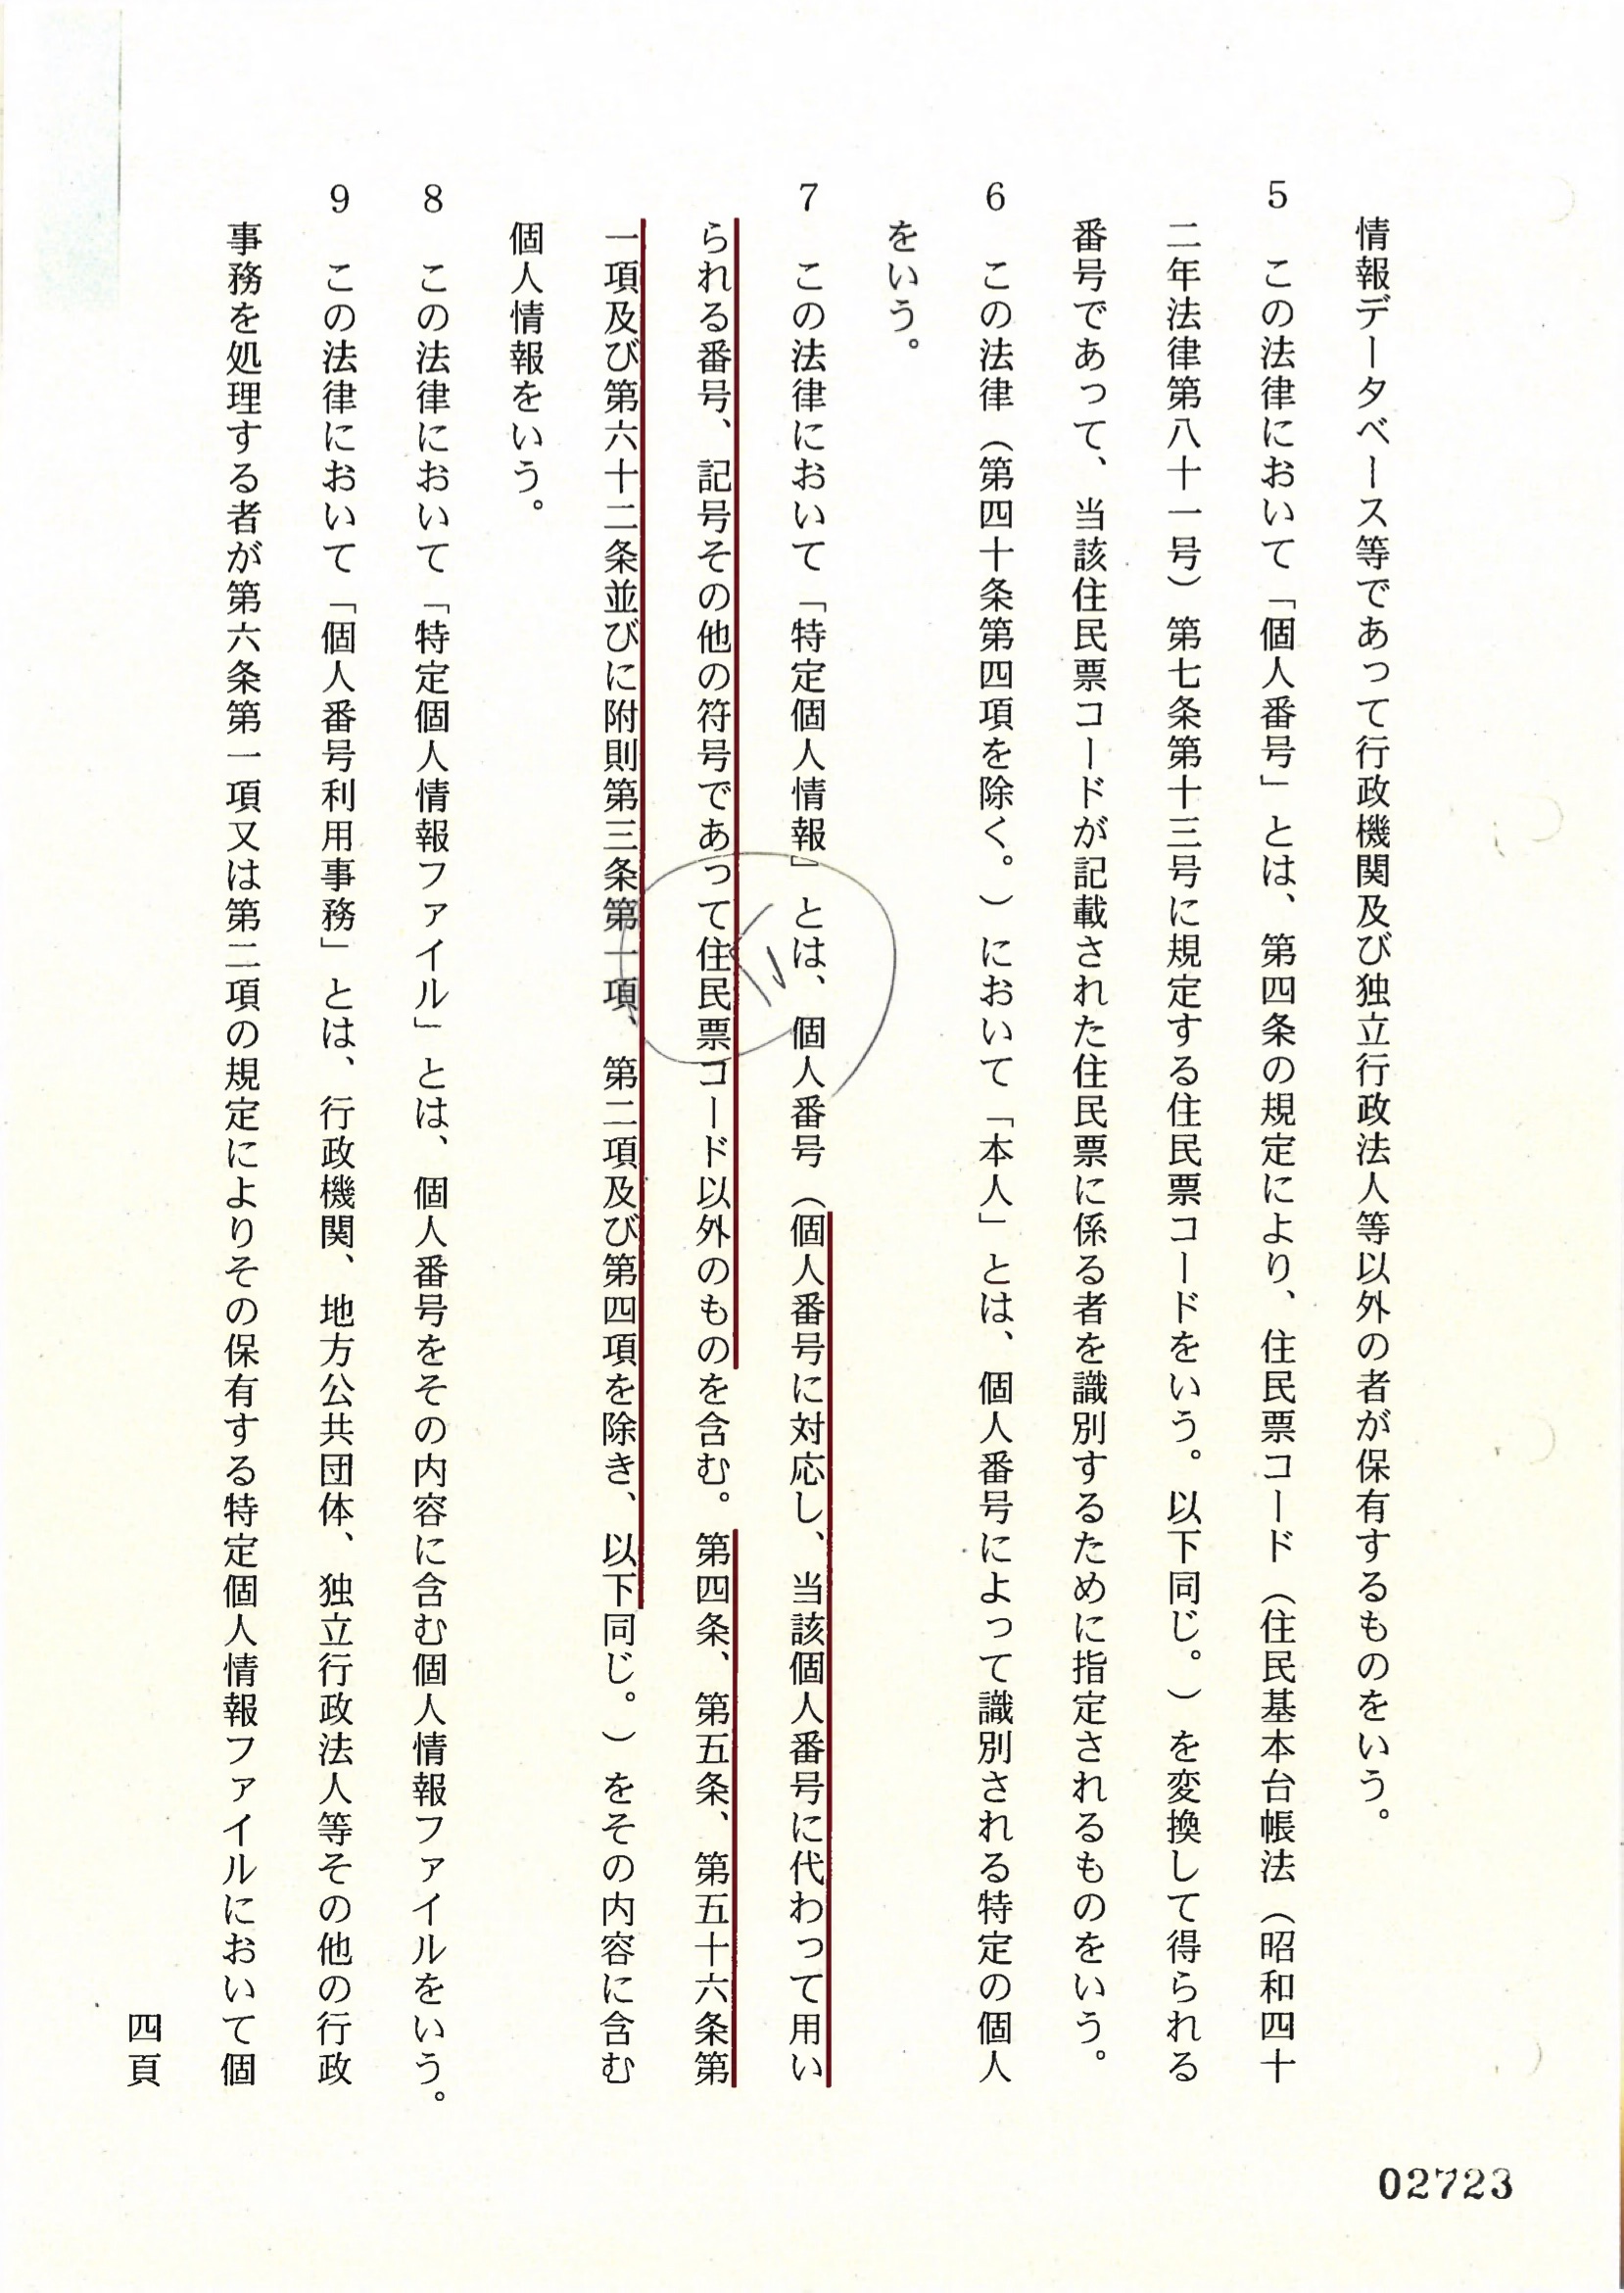 情報データベース等であって行政機関及び独立行政法人等以外の者が保有するものをいう。
5　この法律において「個人番号」とは、第四条の規定により、住民票コード（住民基本台帳法（昭和四十
二年法律第八十一号）第七条第十三号に規定する住民票コードをいう。以下同じ。）を変換して得られる
番号であって、当該住民票コードが記載された住民票に係る者を識別するために指定されるものをいう。
6　この法律（第四十条第四項を除く。）において「本人」とは、個人番号によって識別される特定の個人
をいう。
7　この法律において「特定個人情報」とは、個人番号（個人番号に対応し、当該個人番号に代わって用い
られる番号、記号その他の符号であって住民票コード以外のものを含む。第四条、第五条、第五十六条第
一項及び第六十二条並びに附則第三条第一項、第二項及び第四項を除き、以下同じ。）をその内容に含む
個人情報をいう。
8　この法律において「特定個人情報ファイル」とは、個人番号をその内容に含む個人情報ファイルをいう。
9　この法律において「個人番号利用事務」とは、行政機関、地方公共団体、独立行政法人等その他の行政
事務を処理する者が第六条第一項又は第二項の規定によりその保有する特定個人情報ファイルにおいて個
四頁
02723